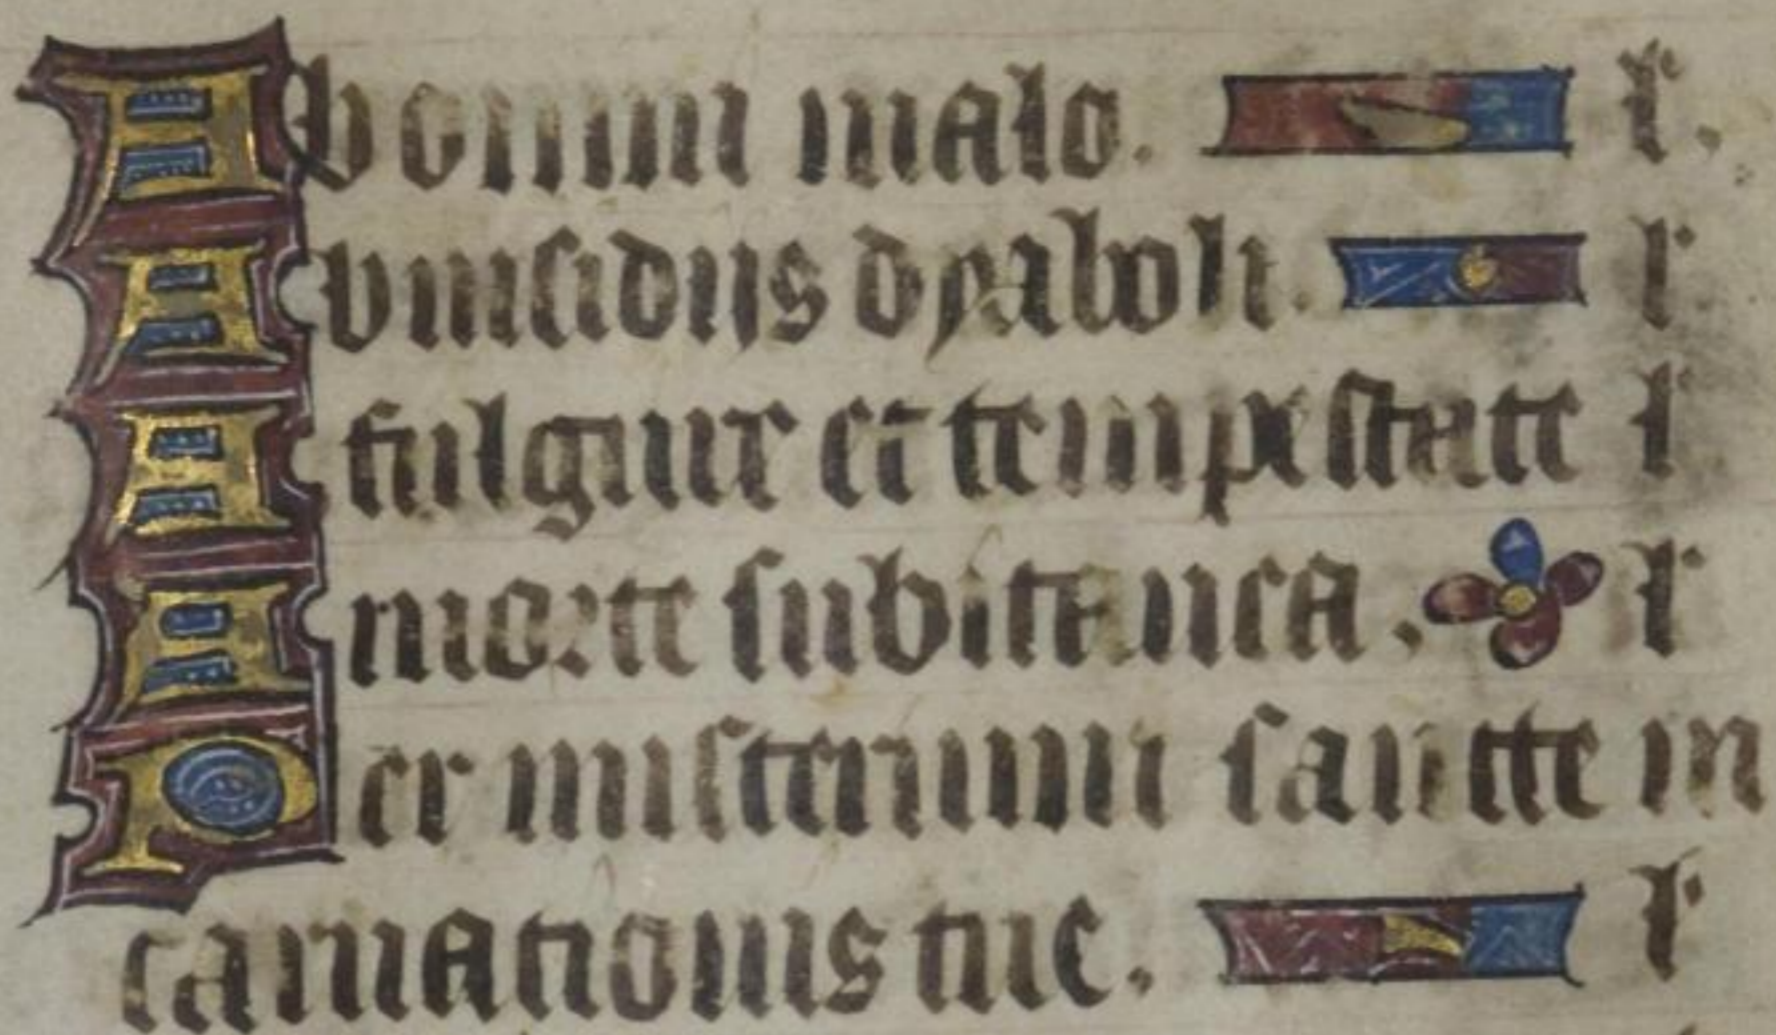 Ab omni malo. l'.
Ab insidiis dyaboli. l'
A fulgure et tempestate l'
A morte subitanea. l'
Per misterium sancte in
carnationis tue. l'